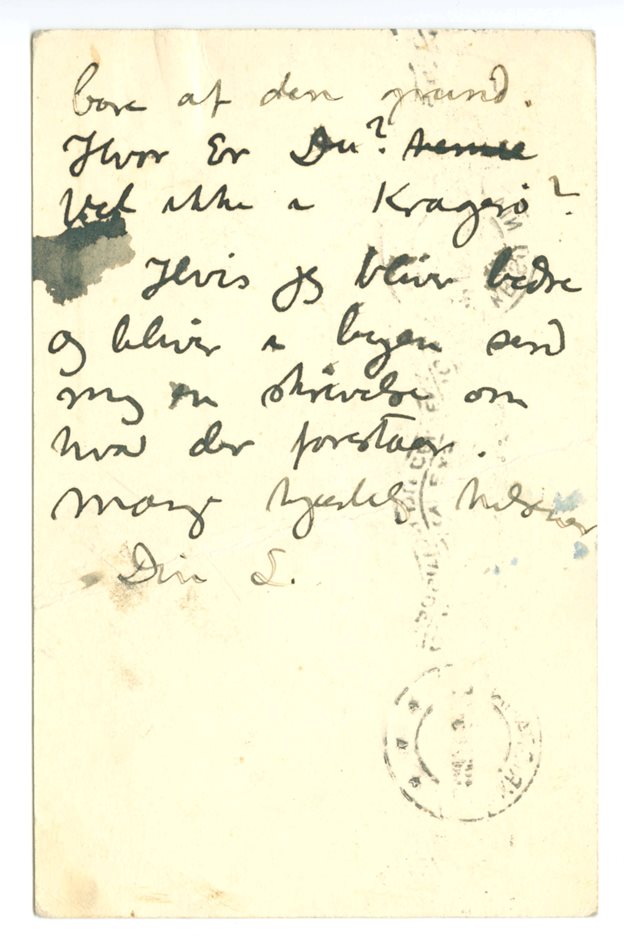 bare af den grund.
Hvor Er Du?
Vel ikke i Kragerø?
Hvis jeg bliver bedre
og bliver i byen send
mig en skrivelse om
hva der forestaar.
Mange hjertelig hilsener
Din L.